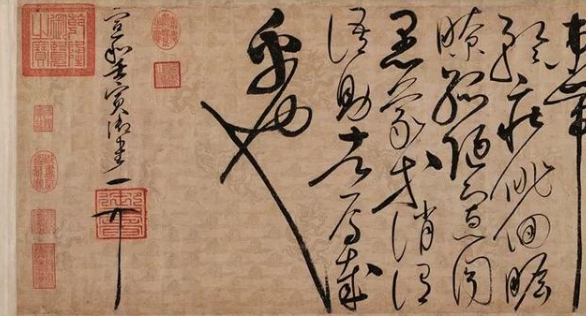 束帶
矜莊徘徊瞻
眺孤陋寡聞
愚蒙等誚謂
語助者焉哉
乎也
宣和壬寅御書